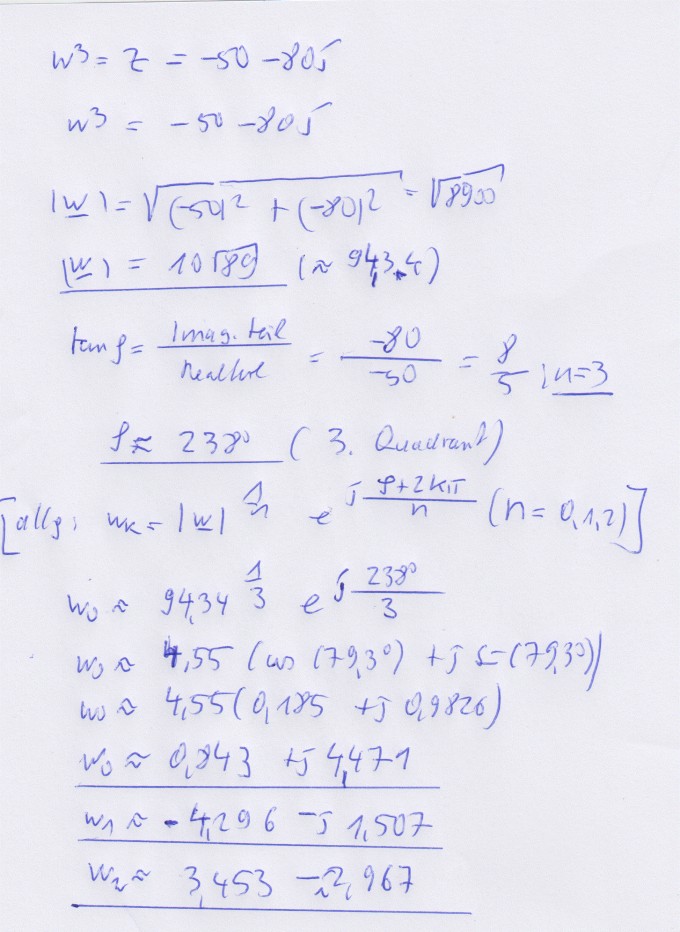 w³ = z = -50 -80j
w³ = -50 -80j
|w| = √((-50)² + (-80)²) = √8900
|w| = 10√89 (≈ 94,3.4)
tan φ = Imag.teil / Realteil = -80 / -50 = 8/5 ; n=3
φ ≈ 238° (3. Quadrant)
[allg: wk = |w|^(1/n) e^(j (φ+2kπ)/n) (n = 0,1,2)]
w₀ ≈ 94,34^(1/3) e^(j 238°/3)
w₀ ≈ 4,55 (cos (79,3°) + j sin (79,3°))
w₀ ≈ 4,55 (0,185 + j 0,9826)
w₀ ≈ 0,843 + j 4,471
w₁ ≈ -4,296 - j 1,507
w₂ ≈ 3,453 - 2,967